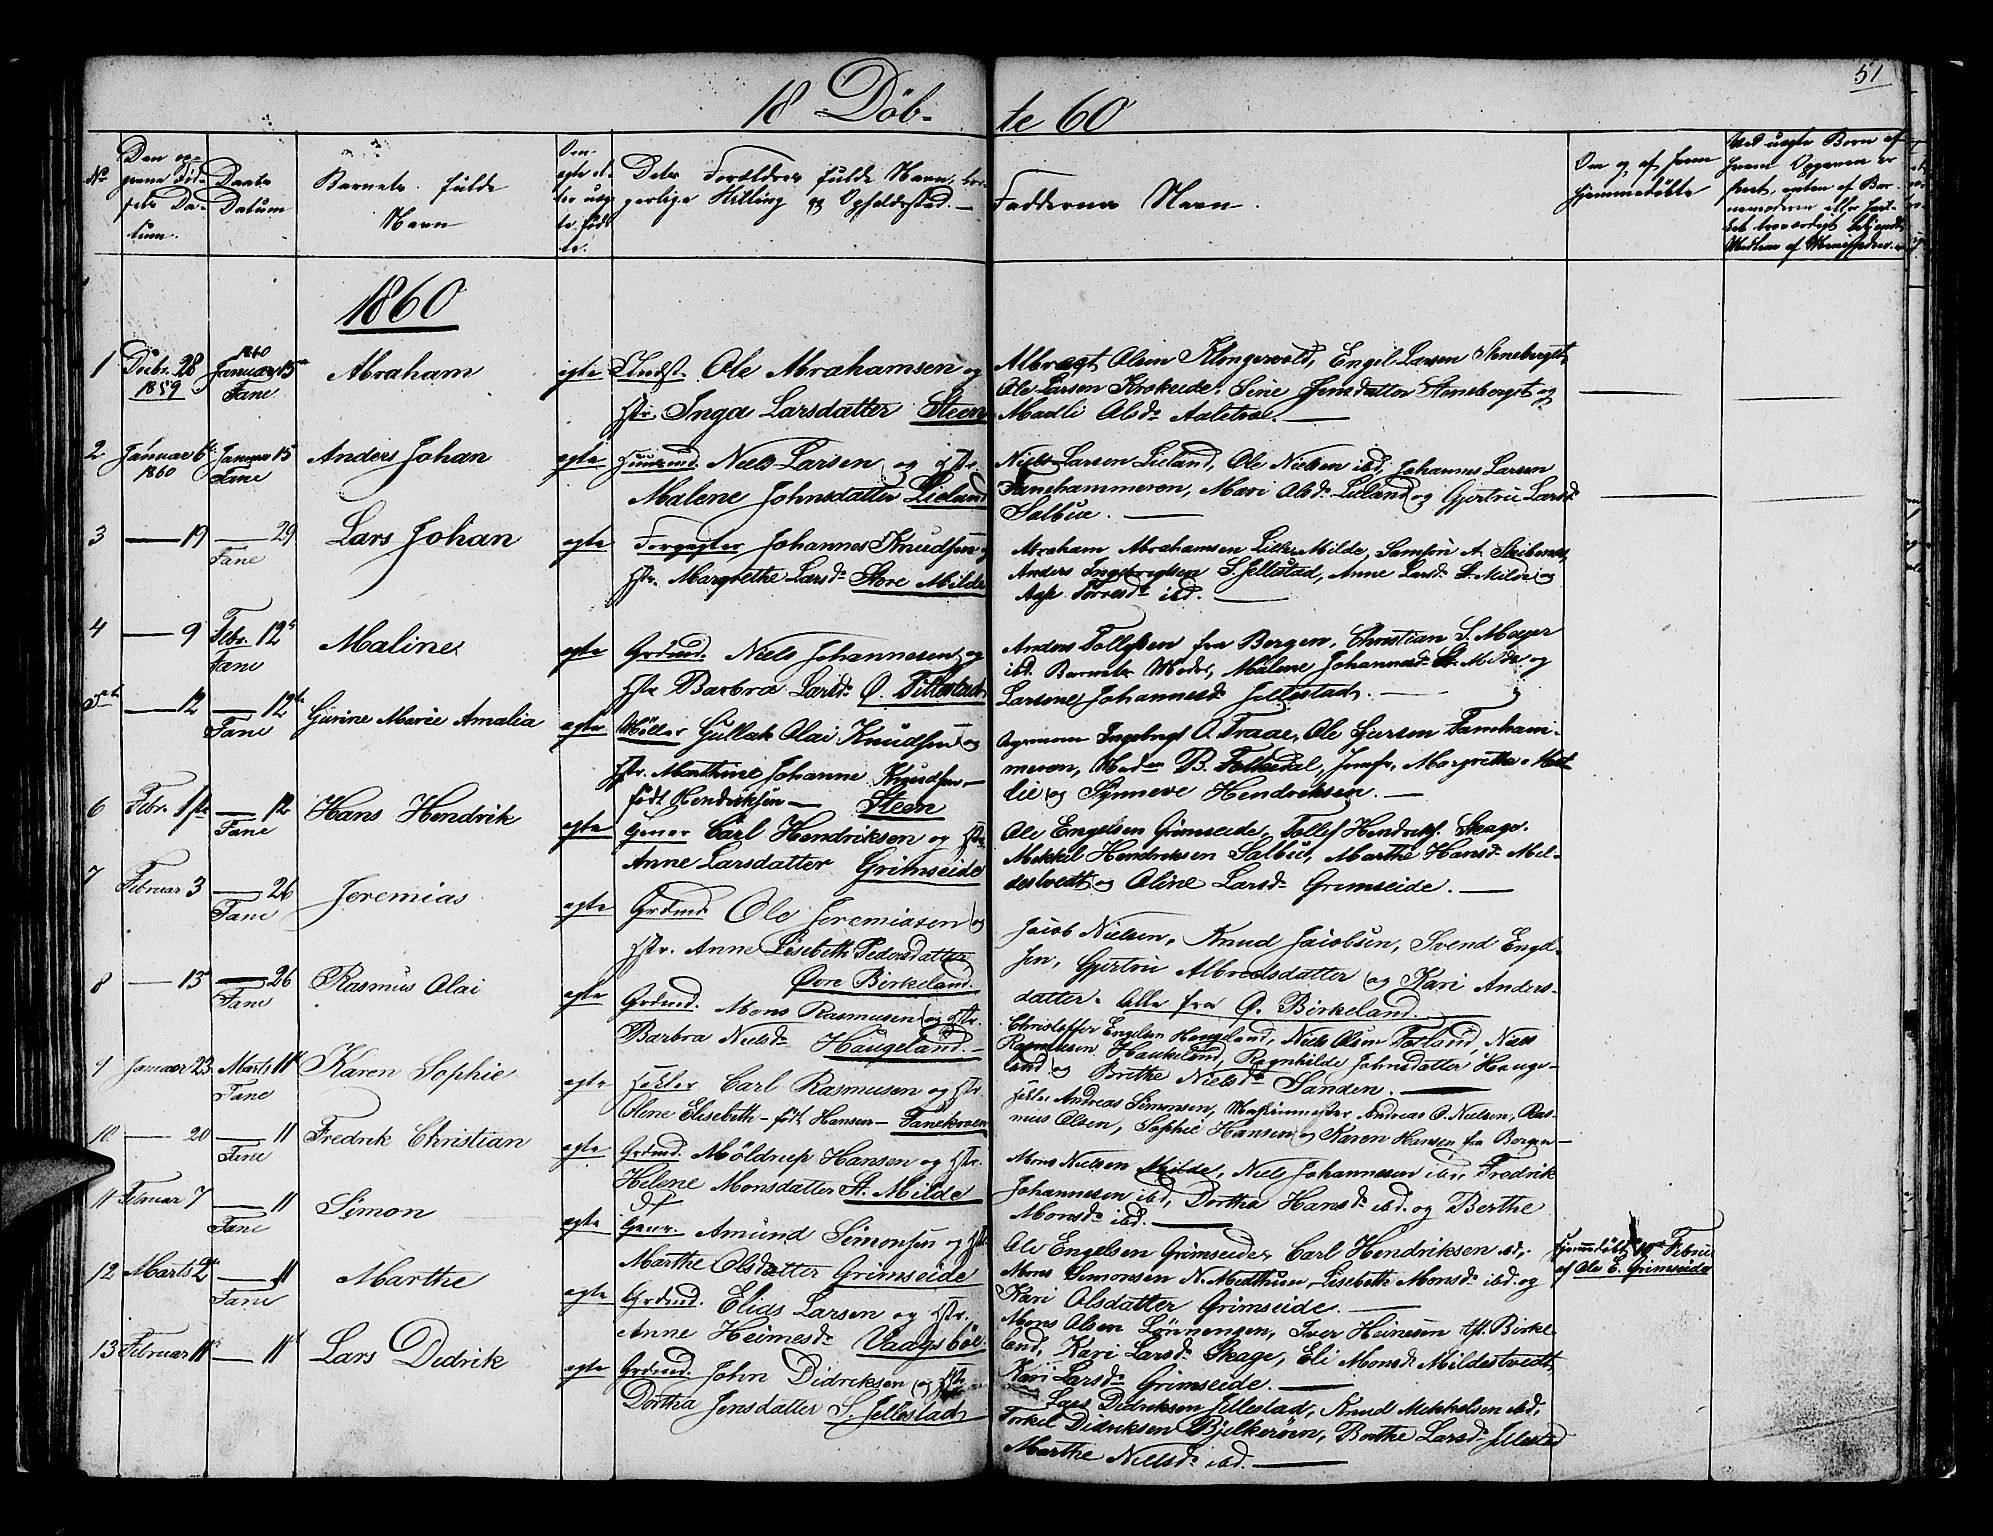 51
18 Døb- te 60
No
Barnets fulde
Navn
Faddernes Navn.
Daabs
Datum
Om og af hvem
hjemmedøbte
1860
1 Decbr. 28 1859 1860 Januar 15 Fane Abraham egte Indst. Ole Abrahamsen og
Hstr. Inga Larsdatter Steen
Albregt Olsen Klongervold, Engel Larsen Stenebergt,
Ole Larsen Krokeide, Sine Jensdatter Stenebergt og
Madli Olsd. Aalstræ. —
2 Januar 6 1860 Januar 15 Fane Anders Johan egte Huusmd. Niels Larsen og Hstr.
Malene Johnsdatter Lieland
Niels Larsen Lieland, Ole Nielsen ibd, Johannes Larsen
Fanehammeren, Mari Olsd. Lieland og Gjertru Larsd.
Salbue. —
3 — 19 — 29 Fane Lars Johan egte Forpagter Johannes Knudsen og
Hstr. Margrethe Larsd. Store Milde
Abraham Abrahamsen Lille Milde, Samson A. Skibenes,
Anders Ingebrigtsen S. Jellestad, Anne Larsd. St. Milde og
Aase Torresd. ibd. —
4 — 9 Febr. 12 Fane Maline egte Grdmd. Niels Johannesen og
Hstr Barbra Larsd. Ø. Tittlestad
Anders Tollefsen fra Bergen, Christian S. Meyer
ibd. Barnets Moder, Malene Johannesd. St. Milde og
Larsene Johannesd. Jellestad. —
5 — 12 — 12 Fane Gurine Marie Amalia egte Møller Gullak Olai Knudsen og
Hstr. Marthine Johanne Knudsen —
født Hendriksen — Steen
Ingebrigt O. Traae, Ole Larsen Faneham-
meren, Mad. B. Follesdal, Jomfr. Margrethe
lie og Synneve Hendriksen. —
6 Febr. 1ste — 12 Fane Hans Hendrik egte Gevor Carl Hendriksen og Hstr.
Anne Larsdatter Grimseide
Ole Engelsen Grimseide, Tollef Hendriks. Skage.
Mikkel Hendriksen Salbu, Marthe Hansd. Mil-
destvedt og Oline Larsd. Grimseide. —
7 Februar 3 — 26 Fane Jeremias egte Grdmd. Ole Jeremiasen og
Hstr. Anne Lisebeth Pedersdatter
Øvre Birkeland.
Jacob Nielsen, Knud Jacobsen, Svend Engel-
sen, Gjertru Albrectsdatter og Kari Anders-
datter. Alle fra Ø. Birkeland. —
8 — 13 — 26 Fane Rasmus Olai egte Grdmd. Mons Rasmusen og Hstr.
Barbra Nielsd. Haugeland. —
Christoffer Engelsen Haugeland, Niels Olsen Totland, Niels
Rasmusen Haukeland, Ragnhilde Johnsdatter Hauge-
land og Brithe Nielsd. Sanden. —
9 Januar 23 Marts 11 Fane Karen Sophie egte Carl Rasmusen og Hstr.
Olene Elisebeth — født Hansen — Fanekroen
Andreas Simonsen, Maskinmester Andreas O. Nielsen, Ras-
mus Olsen, Sophie Hansen og Karen Hansen fra Bergen —
10 — 20 — 11 Fane Fredrik Christian egte Grdmd. Møldrup Hansen og Hstr.
Helene Monsdatter St. Milde
Mons Nielsen Milde, Niels Johannesen ibd, Fredrik
Johannesen ibd, Dortha Hansd. ibd. og Berthe
Monsd. ibd. —
11 Februar 7 — 11 Fane Simon egte Gevr. Amund Simonsen og Hstr.
Marthe Olsdatter Grimseide
Ole Engelsen Grimseide, Carl Hendriksen ibd,
Mons Simonsen N. Midthun, Lisebeth Monsd. ibd. og
Kari Olsdatter Grimseide. —
Hjemmedøbt Februar
af Ole E. Grimseide
12 Marts 2 — 11 Fane Marthe egte Grdmd. Elias Larsen og Hstr.
Anne Heimesd. Vaagsbøe.
Mons Olsen Lønningen, Iver Heinesen Birke-
land, Kari Larsd. Skage, Eli Monsd. Mildestvedt,
Kari Larsd. Grimseide. —
13 Februar 11 — 11 Lars Dedrik egte Grdmd. John Didriksen og Hstr.
Dortha Jensdatter S. Jellestad
Lars Dedriksen Jellestad, Knud Mikkelsen ibd,
Torkel Didriksen Bjelkerøen, Berthe Larsd. Jellestad
Marthe Nielsd. ibd. —